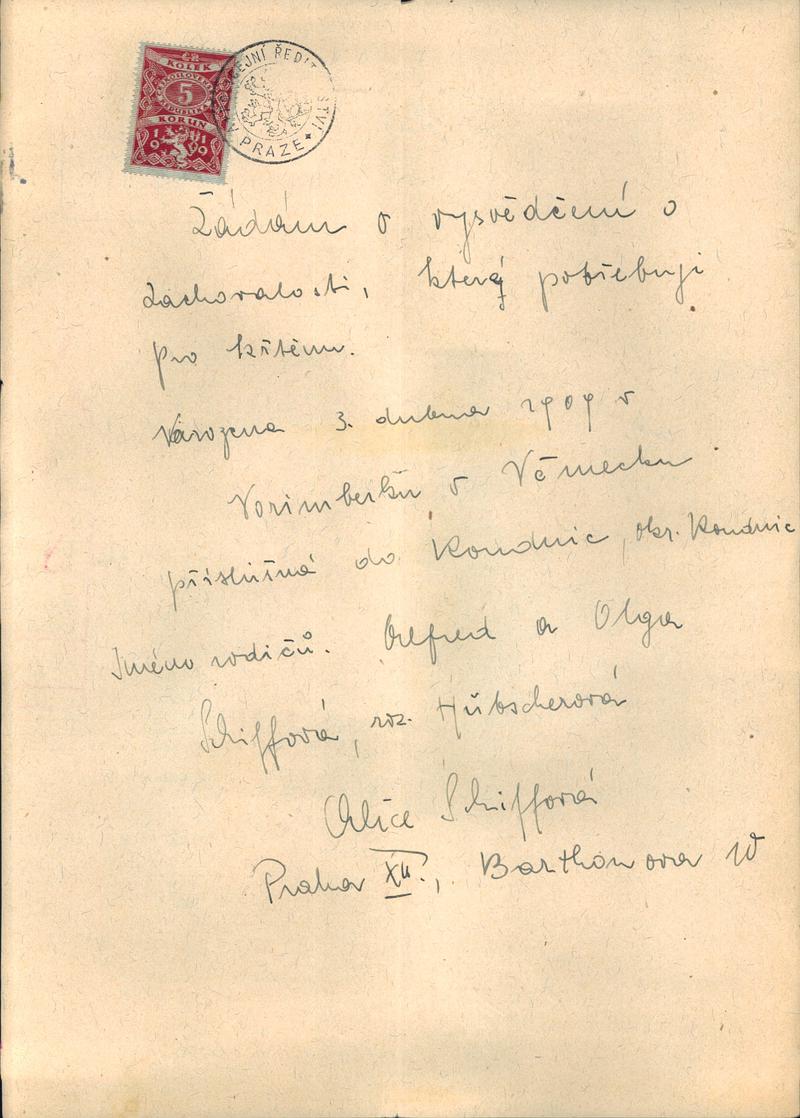 KOLEK
ČESKOSLOVENSKÁ REPUBLIKA
5
KORUN
1919
POLICEJNÍ ŘEDITELSTVÍ
V PRAZE
Žádám o vysvědčení o
zachovalosti, který potřebuji
pro křtěnu.
Narozena 3. dubna 1909 v
Norimberku v Německu
příslušná do Roudnic, okr. Roudnic
Jméno rodičů. Alfred a Olga
Schiffová, roz. Hübscherová
Alice Schiffová
Praha XII., Barthonova 10